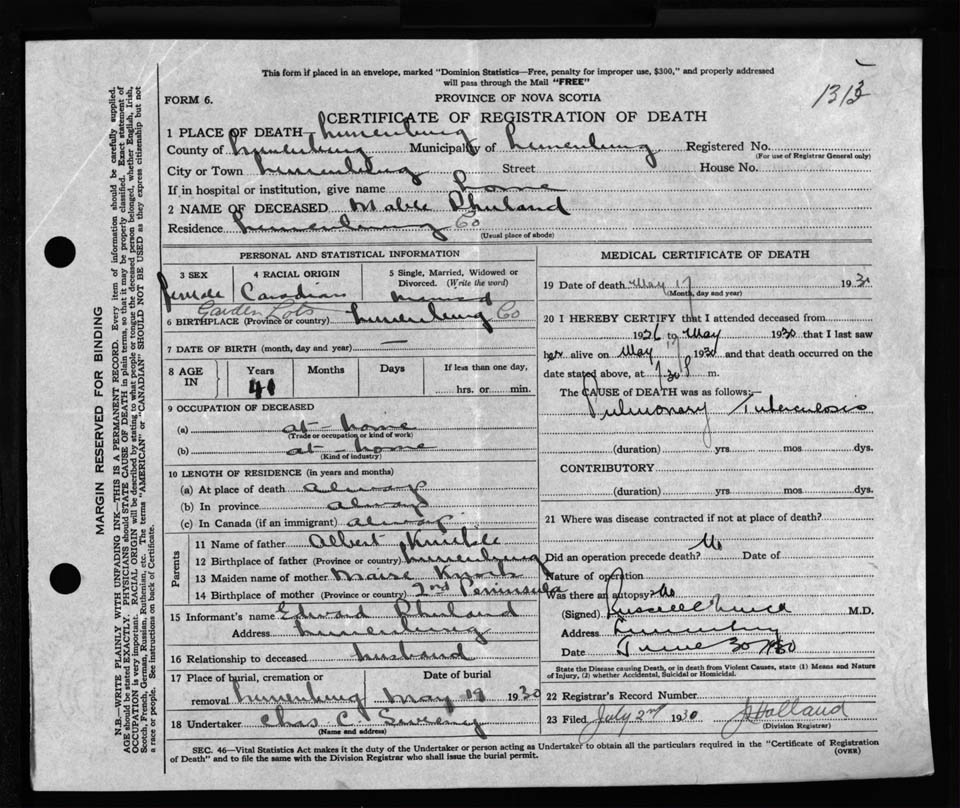 This form if placed in an envelope, marked "Dominion Statistics—Free, penalty for improper use, $300," and properly addressed
will pass through the Mail "FREE"
1313
FORM 6.
PROVINCE OF NOVA SCOTIA
CERTIFICATE OF REGISTRATION OF DEATH
1 PLACE OF DEATH— Lunenburg
County of Lunenburg Municipality of Lunenburg Registered No.
(For use of Registrar General only)
City or Town Lunenburg Street House No.
If in hospital or institution, give name home
2 NAME OF DECEASED Mable Rhuland
Residence Lunenburg Co
(Usual place of abode)
PERSONAL AND STATISTICAL INFORMATION
3 SEX 4 RACIAL ORIGIN 5 Single, Married, Widowed or
Divorced. (Write the word)
female Canadian married
Garden Lots
6 BIRTHPLACE (Province or country) Lunenburg Co
7 DATE OF BIRTH (month, day and year) —
8 AGE IN Years Months Days If less than one day,
41 hrs. or min.
9 OCCUPATION OF DECEASED
(a) at-home
(Trade or occupation or kind of work)
(b) at-home
(Kind of industry)
10 LENGTH OF RESIDENCE (in years and months)
(a) At place of death always
(b) In province always
(c) In Canada (if an immigrant) always
Parents
11 Name of father Albert
12 Birthplace of father (Province or country) Lunenburg
13 Maiden name of mother
14 Birthplace of mother (Province or country) Peninsula
15 Informant's name Edward Rhuland
Address Lunenburg
16 Relationship to deceased husband
17 Place of burial, cremation or Date of burial
removal Lunenburg May 19 1930
18 Undertaker Chas C. Sweeny
(Name and address)
MEDICAL CERTIFICATE OF DEATH
19 Date of death May 17 1930
(Month, day and year)
20 I HEREBY CERTIFY that I attended deceased from
1926 to May 1930 that I last saw
her alive on May 17 1930 and that death occurred on the
date stated above, at 7.30 P m.
The CAUSE OF DEATH was as follows:—
Pulmonary Tuberculosis
(duration) yrs mos dys.
CONTRIBUTORY
(duration) yrs mos dys.
21 Where was disease contracted if not at place of death?
Did an operation precede death? No Date of
Nature of operation
Was there an autopsy No
(Signed) Russell M.D.
Address Lunenburg
Date June 30 1930
State the Disease causing Death, or in death from Violent Causes, state (1) Means and Nature
of Injury, (2) whether Accidental, Suicidal or Homicidal.
22 Registrar's Record Number
23 Filed July 2nd 1930 Holland
(Division Registrar)
SEC. 46—Vital Statistics Act makes it the duty of the Undertaker or person acting as Undertaker to obtain all the particulars required in the "Certificate of Registration
of Death" and to file the same with the Division Registrar who shall issue the burial permit.
(OVER)
MARGIN RESERVED FOR BINDING
N.B.—WRITE PLAINLY WITH UNFADING INK—THIS IS A PERMANENT RECORD. Every item of information should be carefully supplied.
AGE should be stated EXACTLY. PHYSICIANS should STATE CAUSE OF DEATH in plain terms, so that it may be properly classified. Exact statement of
OCCUPATION is very important. RACIAL ORIGIN will be described by stating to what people or tongue the deceased person belonged, whether English, Irish,
Scotch, French, German, Russian, Ruthenian, etc. The terms "AMERICAN" or "CANADIAN" SHOULD NOT BE USED as they express citizenship but not
a race or people. See instructions on back of Certificate.